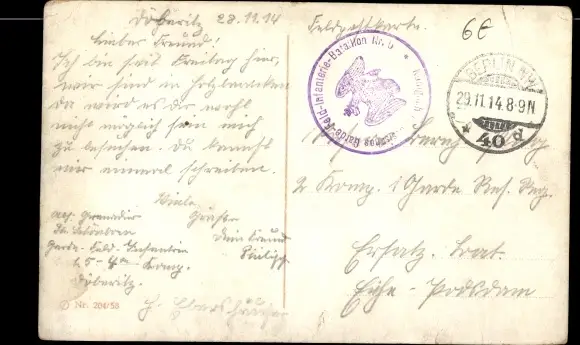 Döberitz 28.11.14
Lieber Freund!
Ich bin seit Freitag hier,
wir sind in Holzbaracken
da wird es dir wohl
nicht möglich sein mich
zu besuchen. Du kannst
mir einmal schreiben.
Viele
Grüße
Dein Freund
Philipp
Grenadier
Garde-Feld-Infantrie
Komp.
Döberitz.
Nr. 204/58
Feldpostkarte.
6E
Garde-Feld-Infanterie-Bataillon Nr.
BERLIN NW
29.11.14.8-9N
* 40 d
2 Komp. 1 Garde Res. Reg.
Ersatz. Bat.
Eiche-Podsdam